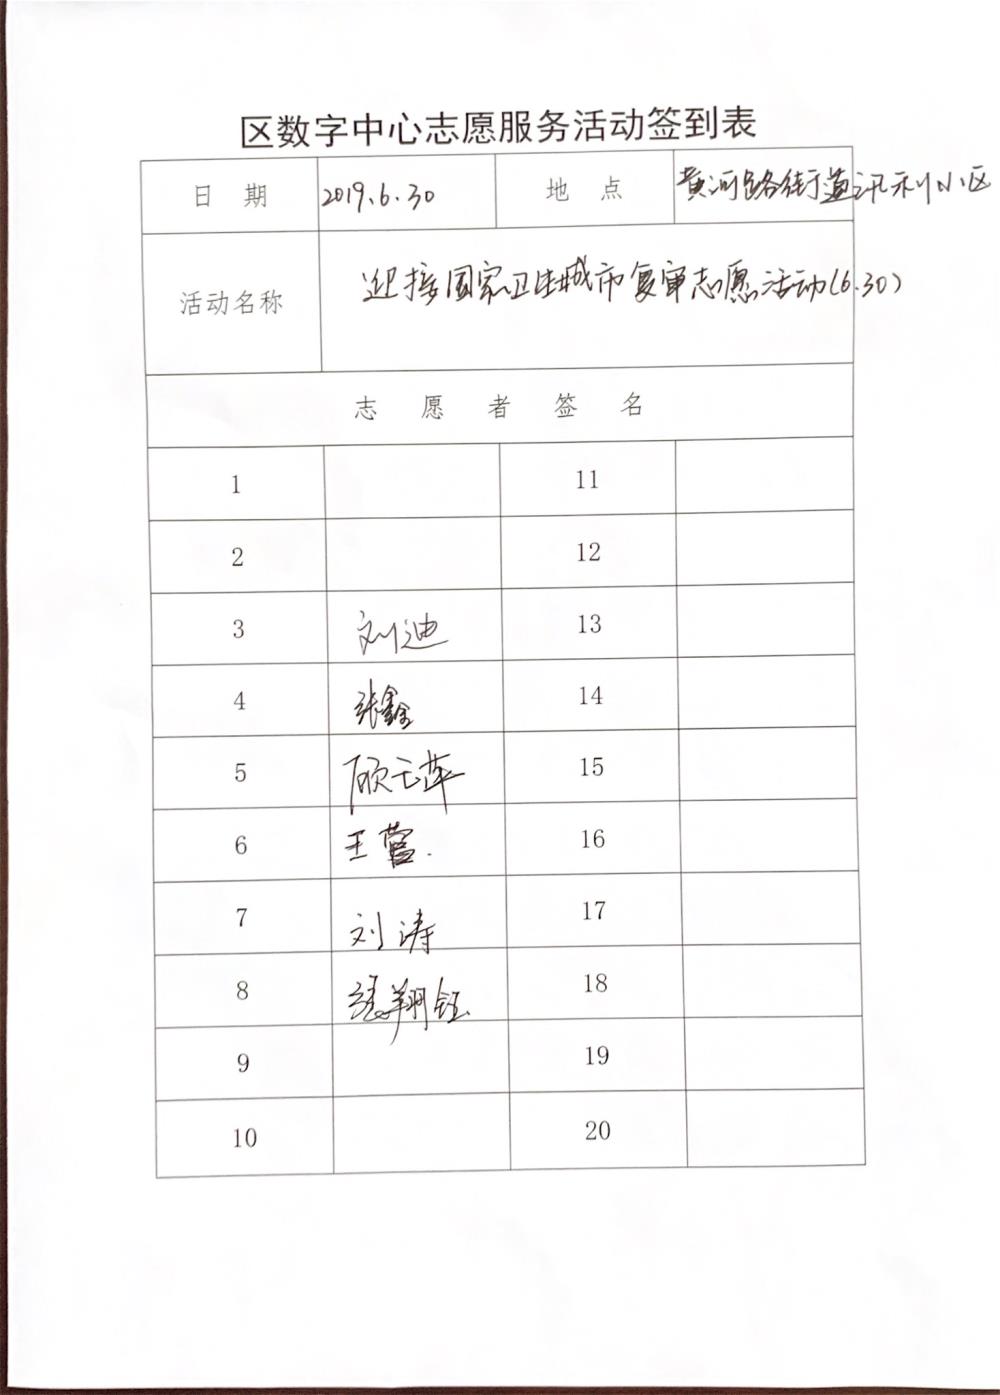 区数字中心志愿服务活动签到表
日 期 2019.6.30 地 点 黄河路街道汛利小区
活动名称 迎接国家卫生城市复审志愿活动(6.30)
志 愿 者 签 名
1 11
2 12
3 刘迪 13
4 张鑫 14
5 顾云萍 15
6 王营 16
7 刘涛 17
8 翔钰 18
9 19
10 20